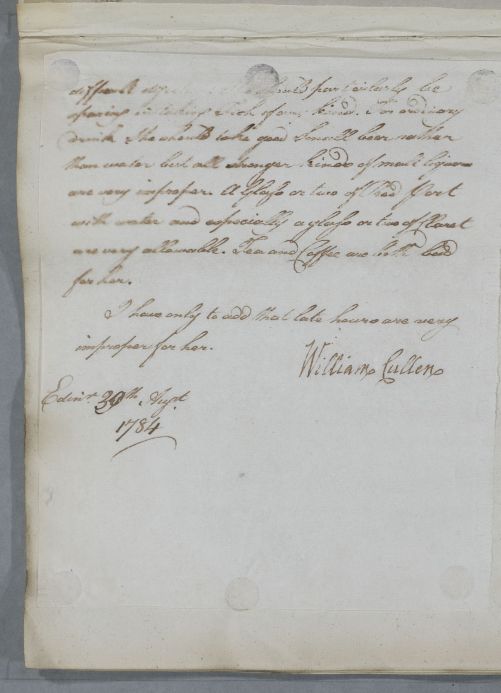 difficult should particularly be
sparing in taking Fish of any kind. For ordinary
drink She should take good Small beer rather
than water but all stronger kinds of malt liquors
are very improper. A Glass or two of Port
with water and especially a glass or two of Claret
are very allowable. Tea and Coffee are both bad
for her.
I have only to add that late hours are very
improper for her.
William Cullen
Edinr. 29th Augt.
1784